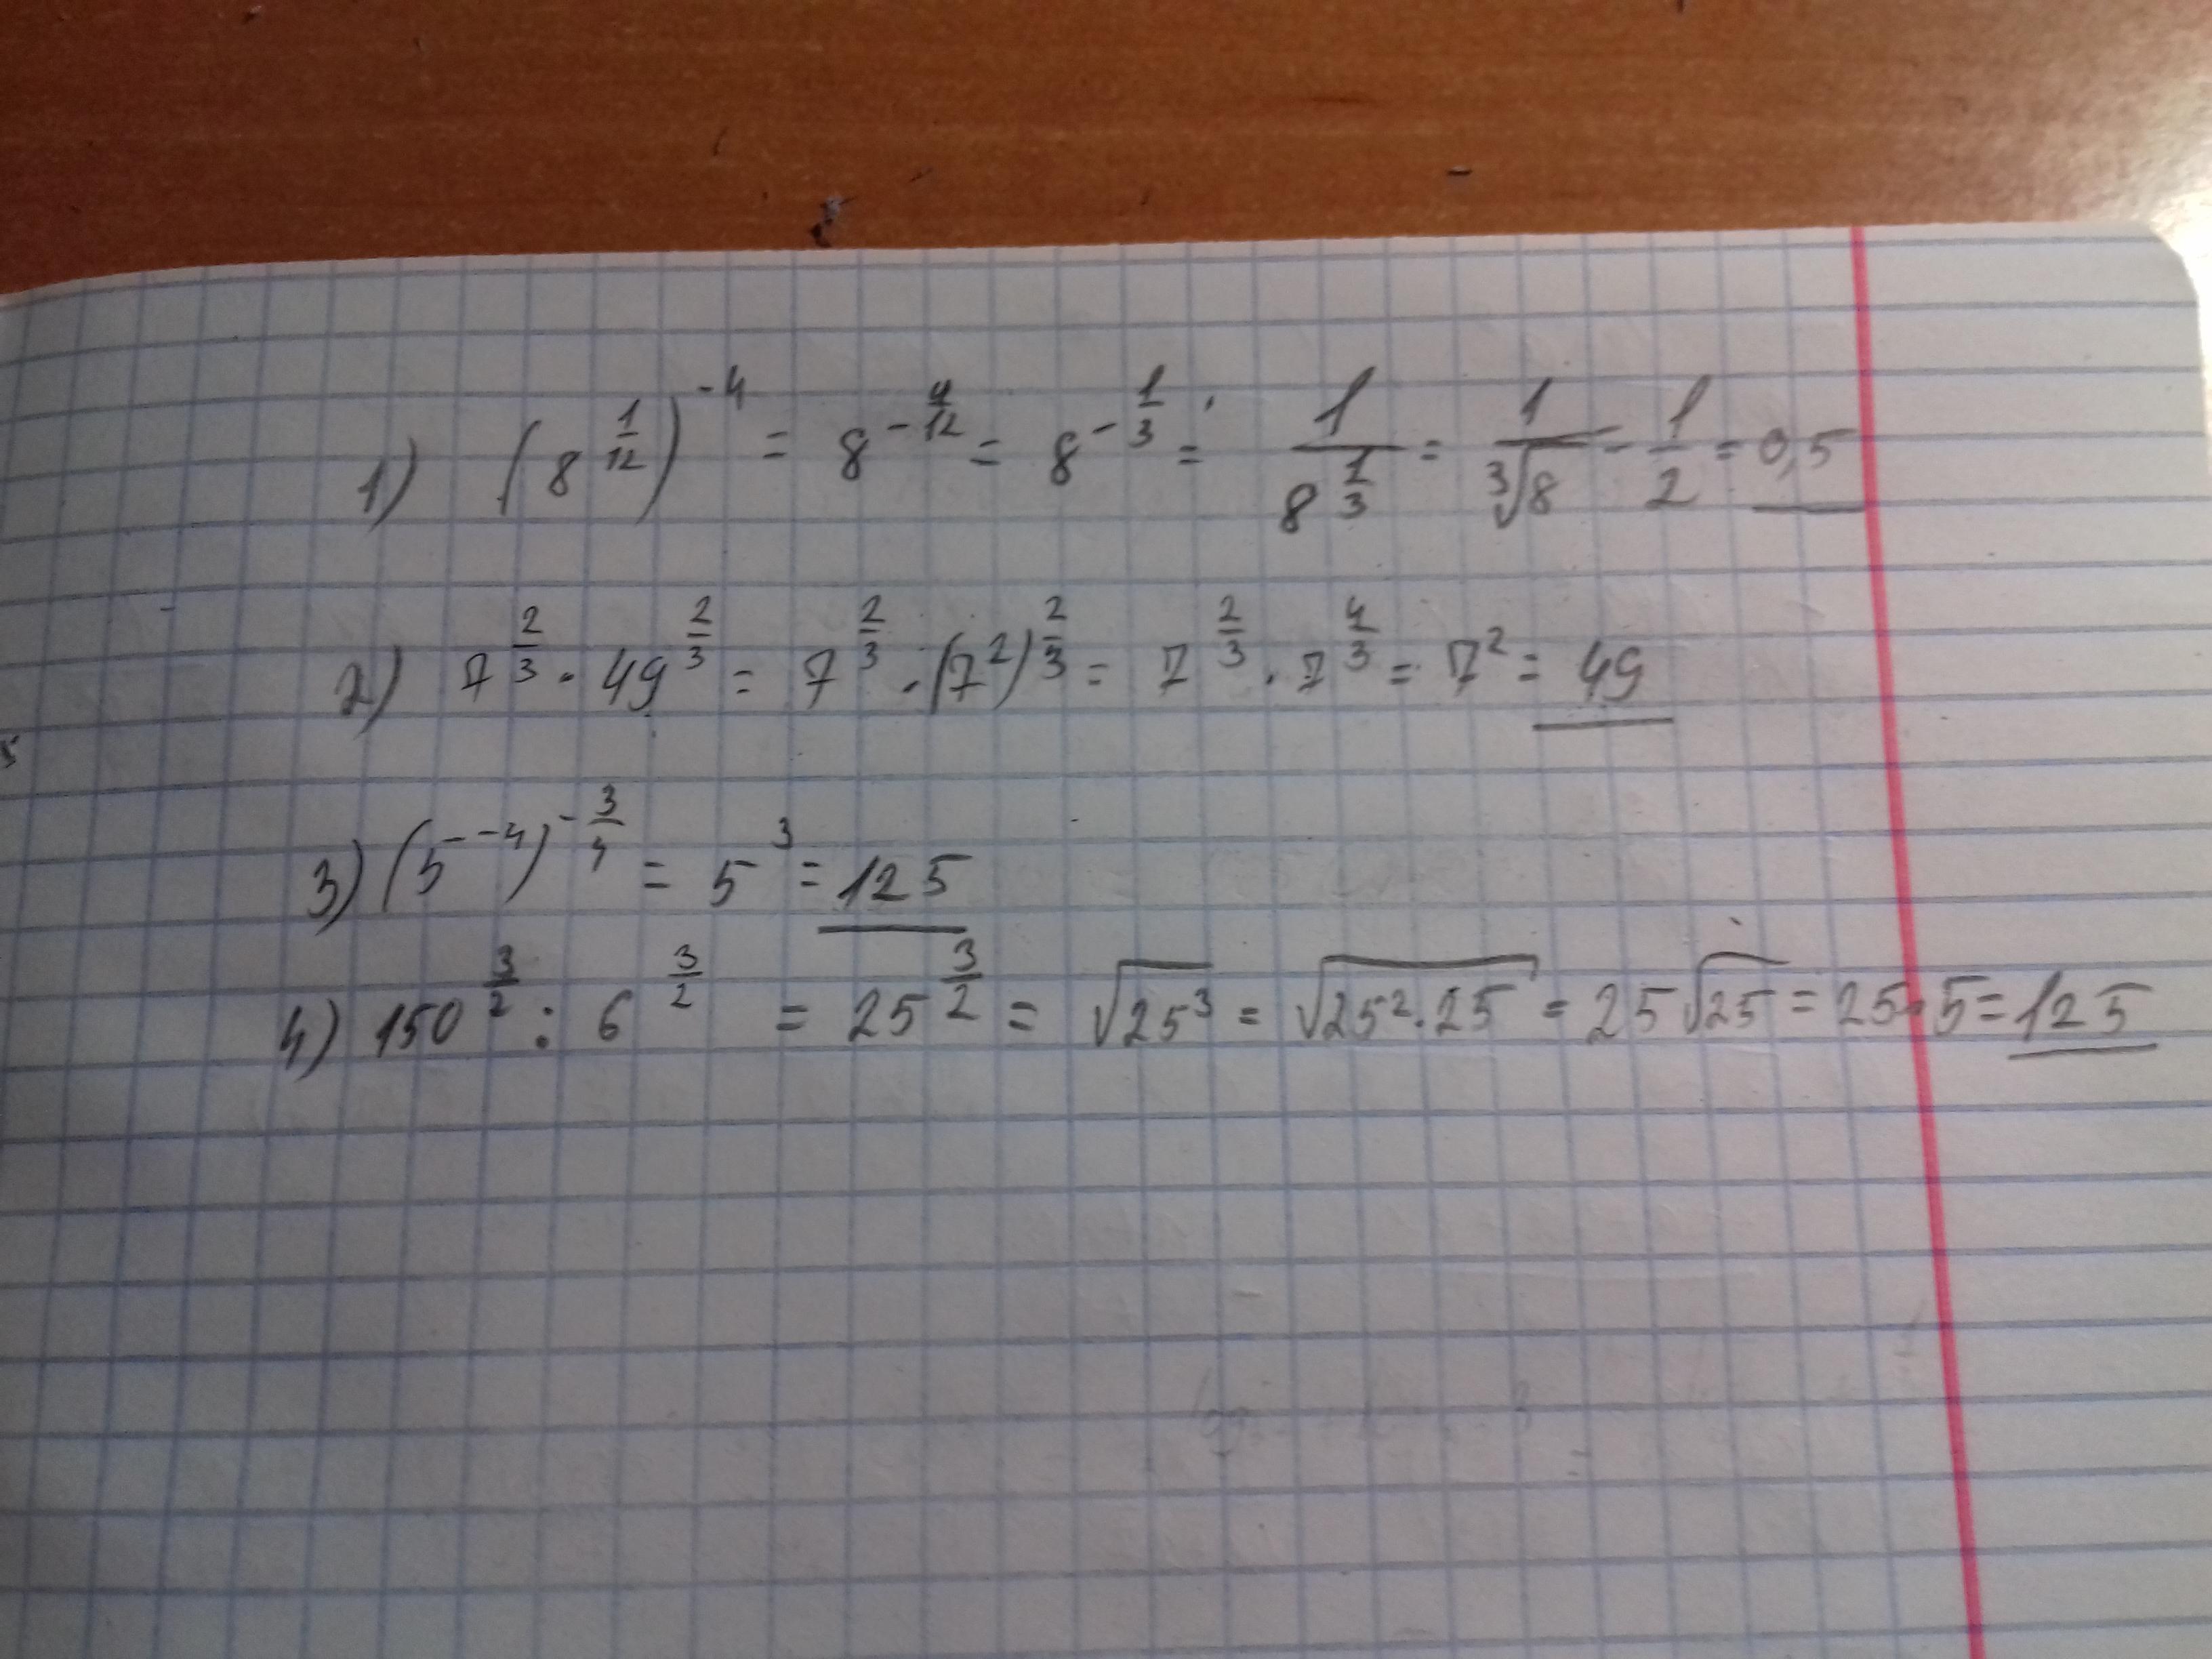 1) (8^(1/12))^-4 = 8^(-4/12) = 8^(-1/3) = 1/8^(1/3) = 1/∛8 = 1/2 = 0,5
2) 7^(2/3) · 49^(2/3) = 7^(2/3) · (7^2)^(2/3) = 7^(2/3) · 7^(4/3) = 7^2 = 49
3) (5^-4)^(-3/4) = 5^3 = 125
4) 150^(3/2) : 6^(3/2) = 25^(3/2) = √(25^3) = √(25^2·25) = 25√25 = 25·5 = 125